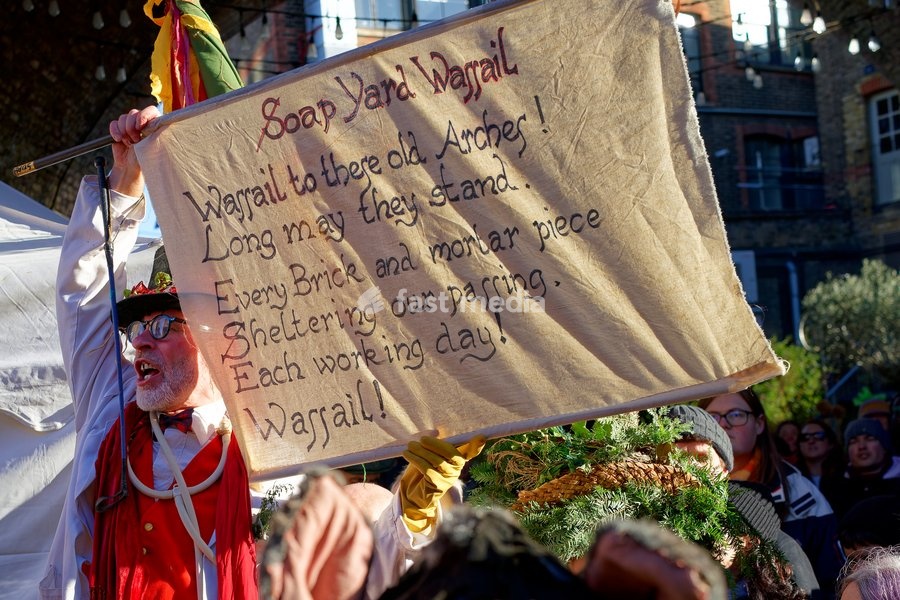 Soap Yard Waſſail
Waſſail to theſe old Arches!
Long may they stand.
Every Brick and mortar piece
Sheltering our passing.
Each working day!
Waſſail!
fast media